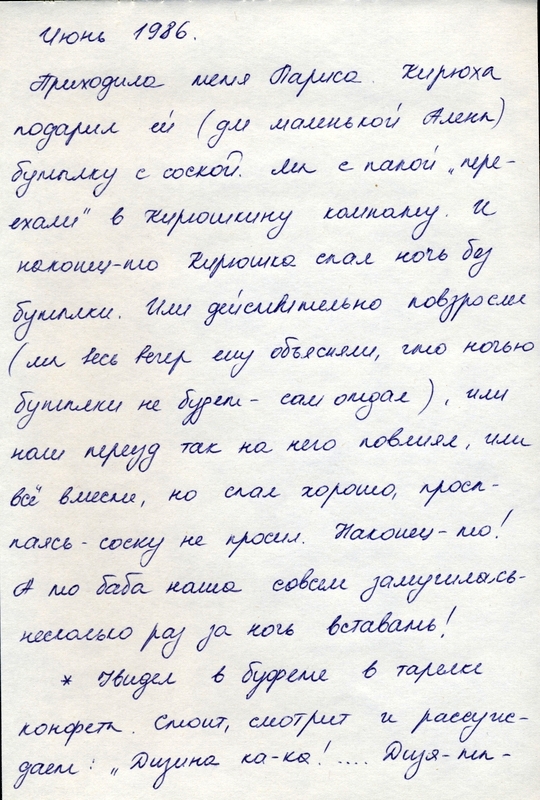 Июнь 1986.
Приходила тётя Лариса. Кирюха
подарил ей (для маленькой Алены)
бутылку с соской. Мы с папой „пере-
ехали" в Кирюшкину комнату. И
наконец-то Кирюшка спал ночь без
бутылки. Или действительно повзрослел
(мы весь вечер ему объясняли, что ночью
бутылки не будет - сам отдал), или
наш переезд так на него повлиял, или
всё вместе, но спал хорошо, просы-
паясь - соску не просил. Наконец-то!
А то баба наша совсем замучилась-
несколько раз за ночь вставать!
* Увидел в буфете в тарелке
конфеты. Стоит, смотрит и рассуж-
дает: „Дизина ка-ка! .... Дизя-